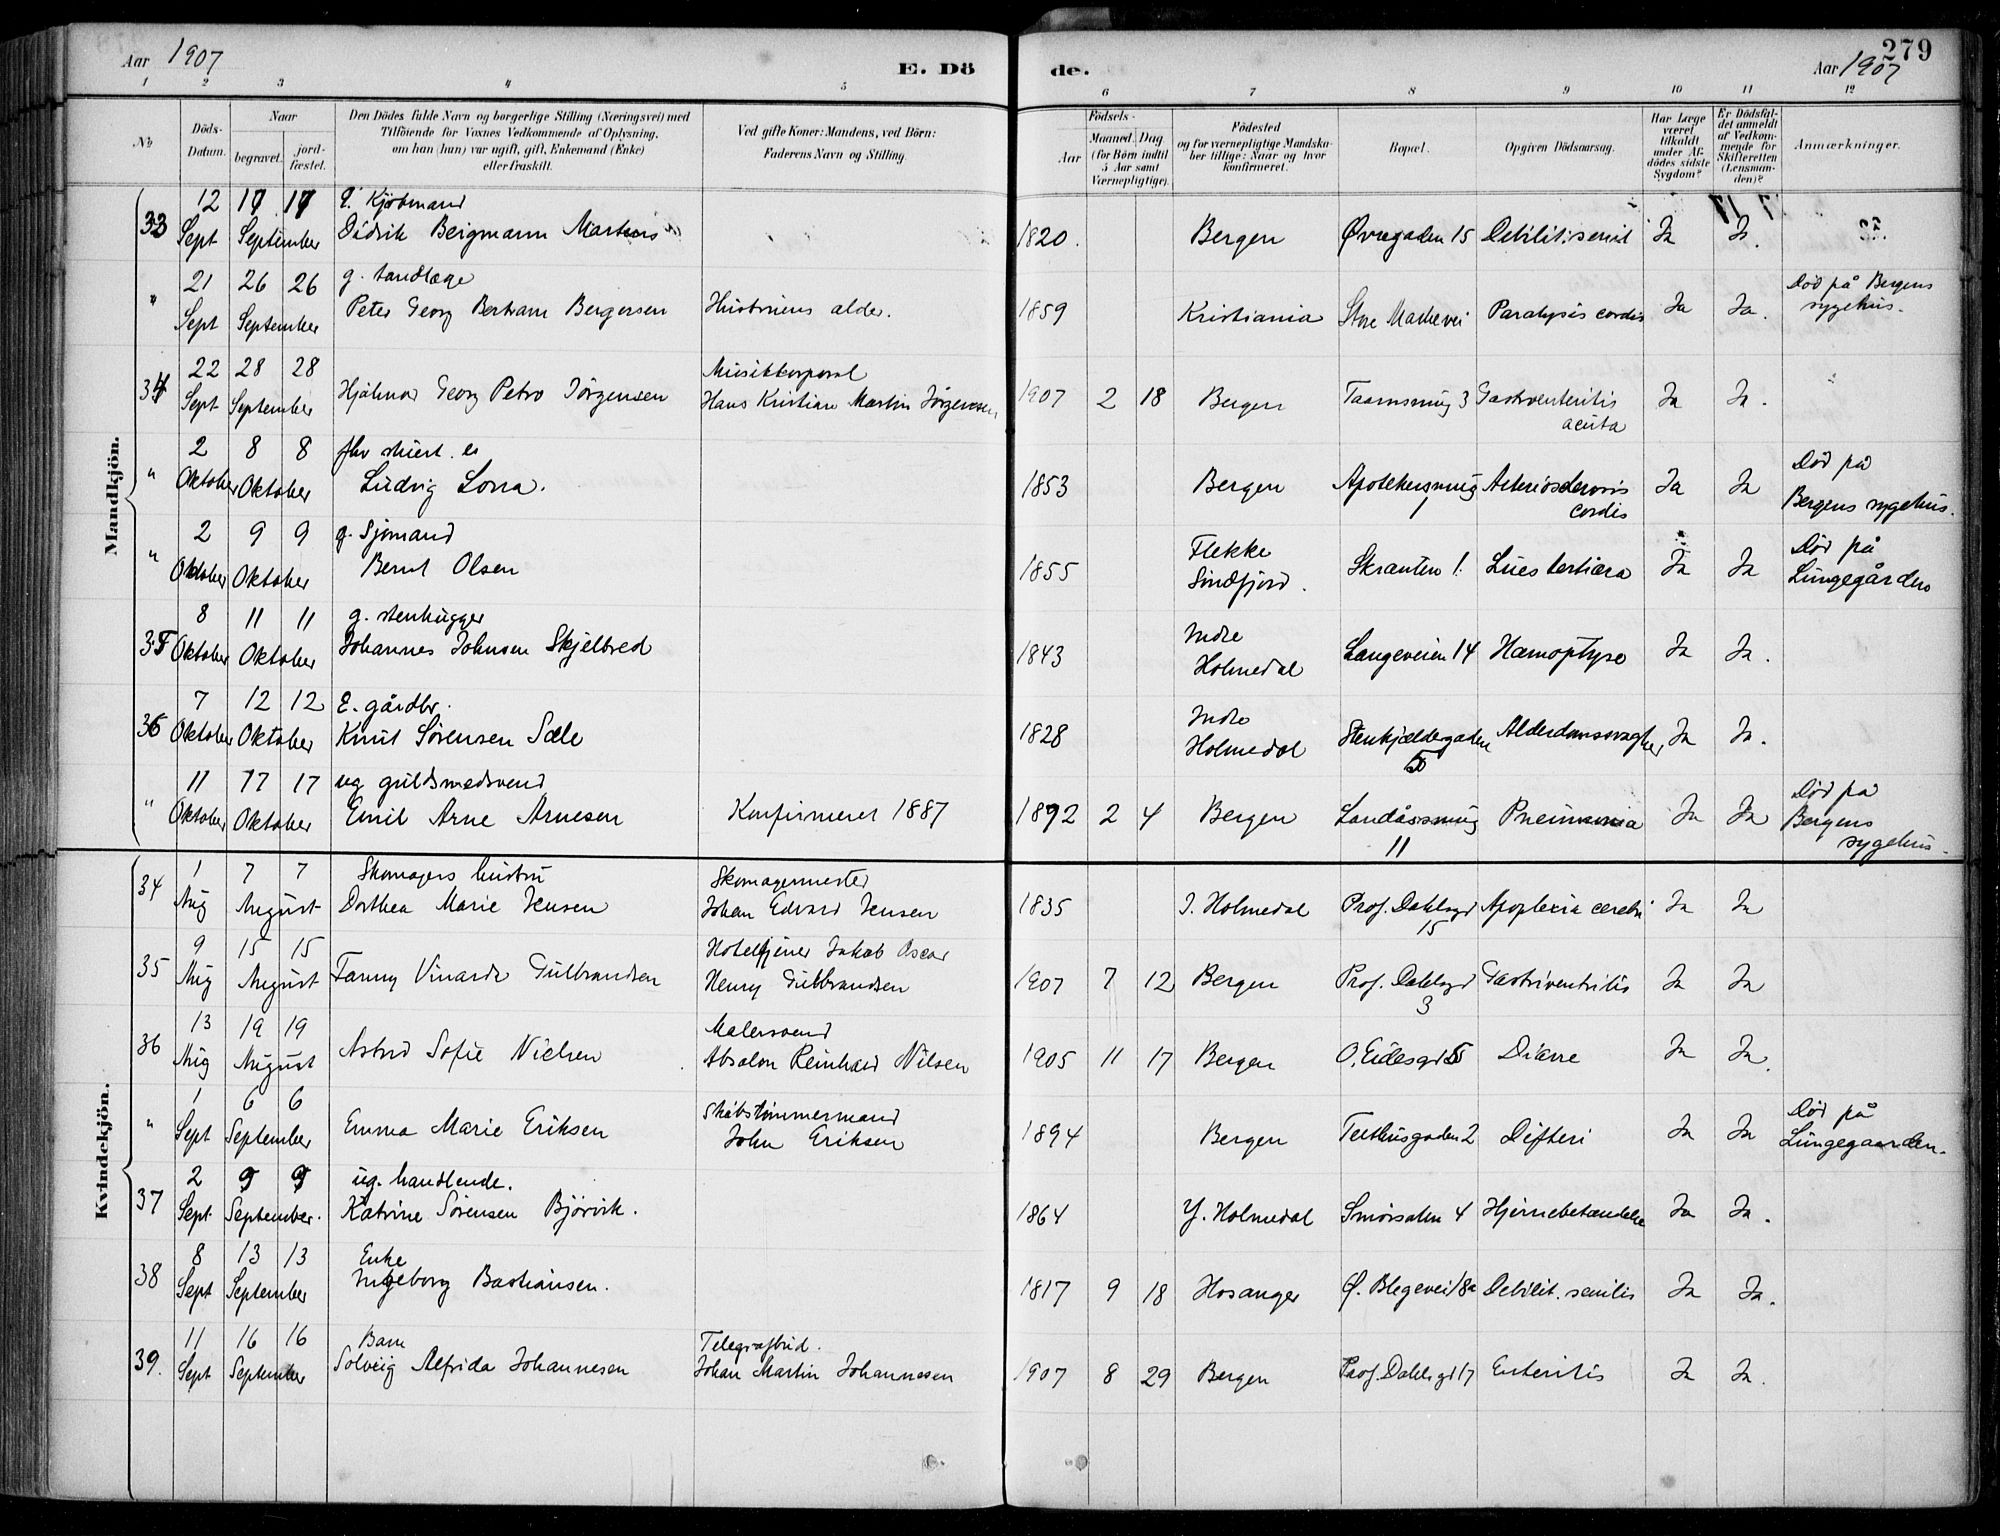 Aar 1907
E. Dö
de.
Aar 1907
279
1 2 3 4 5 6 7 8 9 10 11 12
No
Döds-Datum.
Naar
begravet.
jord-fæstet.
Den Dödes fulde Navn og borgerlige Stilling (Næringsvei) med
Tilföiende for Voxnes Vedkommende af Oplysning,
om han (hun) var ugift, gift, Enkemand (Enke)
eller fraskilt.
Ved gifte Koner: Mandens, ved Börn:
Faderens Navn og Stilling.
Födsels-
Aar
Maaned. Dag
(for Börn indtil
5 Aar samt
Værnepligtige).
Födested
og for værnepligtige Mandska-
ber tillige: Naar og hvor
konfirmeret.
Bopæl.
Opgiven Dödsaarsag.
Har Læge
været
tilkaldt
under Af-
dödes sidste
Sygdom?
Er Dödsfal-
det anmeldt
af Vedkom-
mende for
Skifteretten
(Lensman-
den)?
Anmærkninger.
Mandkjön.
12 17 17 E. Kjöbmand
33 Sept September Didrik Bergmann Martens 1820. Bergen Øvregaden 15 Debilit. senil Ja Ja.
21 26 26 g. tandlæge Død på Bergens
" Sept September Peter Georg Bertram Bergersen Hustruens alder. 1859 Kristiania Store Markevei Paralysis cordis Ja Ja. sygehus.
22 28 28 Musikkorporal
34 Sept September Hjalmar Georg Petro Jørgensen Hans Kristian Martin Jørgensen 1907 2 18 Bergen Taarnsmug 3 Gastroenteritis Ja Ja.
acuta
2 8 8 Død på
" Oktober Oktober Ludvig Lorra. 1853 Bergen Apothekersmug Arteriosclerosis Ja Ja Bergens sygehus.
1 cordis
2 9 9 g. Sjømand Flekke Død på
" Oktober Oktober Bernt Olsen 1855 Søndfjord. Skranten 1. Lues tertiæra Ja Ja Lungegården
8 11 11 g. stenhugger Indre
35 Oktober Oktober Johannes Johnsen Skjelbred 1843 Holmedal Langeveien 14 Hæmoptyse Ja Ja.
7 12 12 E. gårdbr. Indre
36 Oktober Oktober Knut Sørensen Sæle 1828 Holmedal Stenkjældergaden Ja Ja.
5
11 17 17 ug guldsmedsvend Død på
" Oktober Oktober Emil Arne Arnesen Konfirmeret 1887 1892 2 4 Bergen Landåssmug Pneumonia Ja Ja Bergens
11 sygehus.
Kvindekjön.
1 7 7 Skomagers hustru Skomagermester
34 Aug August Dorthea Marie Jensen Johan Edvard Jensen 1835 I. Holmedal Prof. Dahlsgd Apoplexia cerebri Ja Ja
15
9 15 15 Hoteltjener Jakob Oscar
35 Aug August Fanny Gulbrandsen Henry Gulbrandsen 1907 7 12 Bergen Prof. Dahlsgd Gastroventritis Ja Ja
3
13 19 19 Malersvend
36 Aug August Astrid Sofie Nielsen Absalon Reinhard Nilsen 1905 11 17 Bergen O. Eidesgd 5 Diarre Ja Ja.
1 6 6 Skibstømmermand Død på
" Sept September Emma Marie Eriksen John Eriksen 1894 Bergen Teethusgaden 2 Difteri Ja Ja Lungegaarden.
2 9 9 ug. handlende.
37 Sept. September. Katrine Sørensen Bjørvik. 1864 Y. Holmedal Smørsalen 4 Hjernebetændelse Ja Ja.
8 13 13 Enke
38 Sept September Ingeborg Bastiansen. 1817 9 18 Hosanger Ø. Blegevei 18a Debilit. senilis Ja Ja.
11 16 16 Barn Telegrafbud.
39. Sept September Solveig Alfrida Johannesen Johan Martin Johannesen 1907 8 29 Bergen Prof. Dahlsgd 17 Enteritis Ja Ja.